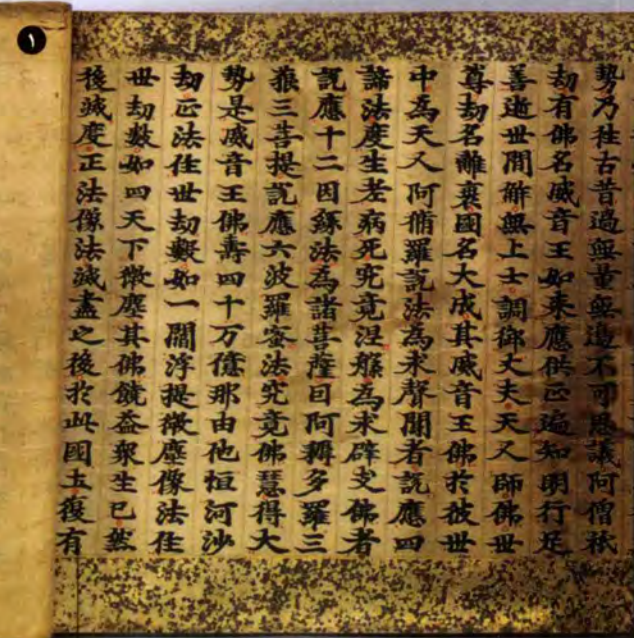 勢乃往古昔過無量無邊不可思議阿僧祇
劫有佛名威音王如来應供正遍知明行足
善逝世間解無上士調御丈夫天人師佛世
尊劫名離衰國名大成其威音王佛於彼世
中為天人阿脩羅說法為求聲聞者說應四
諦法度生老病死究竟涅槃為求辟支佛者
說應十二因緣法為諸菩薩因阿耨多羅三
藐三菩提說應六波羅蜜法究竟佛慧得大
勢是威音王佛壽四十万億那由他恒河沙
劫正法住世劫數如一閻浮提微塵像法住
世劫數如四天下微塵其佛饒益衆生已然
後滅度正法像法滅盡之後於此國土復有
١